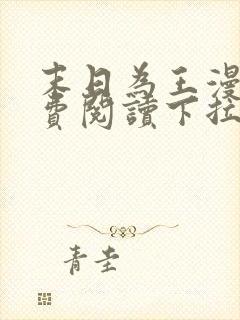 末日為王漫
費閱讀下拉
青圭